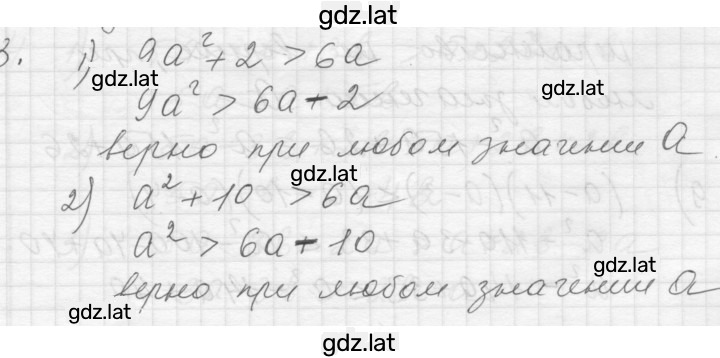 gdz.lat
3. 1) 9a² + 2 > 6a
gdz.lat
9a² > 6a - 2
gdz.lat
верно при любом значении a
gdz.lat
2) a² + 10 > 6a
a² > 6a - 10
gdz.lat
верно при любом значении a
gdz.lat
gdz.lat